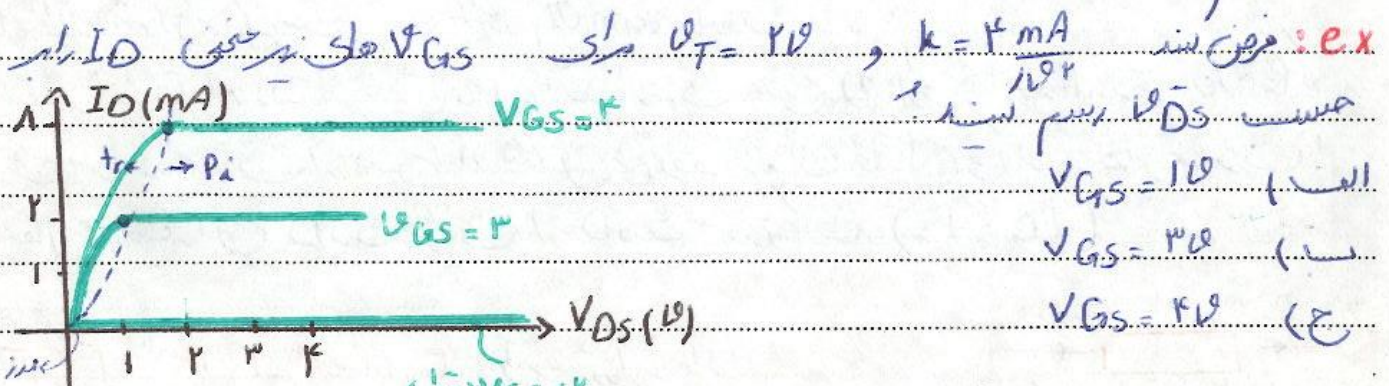 ex: فرض کنید k = ۴ mA/V² و VT = ۲V برای VGS های زیر منحنی ID را بر
حسب VDS رسم کنید.
الف) VGS = ۱V
ب) VGS = ۳V
ج) VGS = ۴V
ID (mA)
۸
VGS = ۴
tr ← → Pi
۲
VGS = ۳
۱
VDS (V)
۱ ۲ ۳ ۴